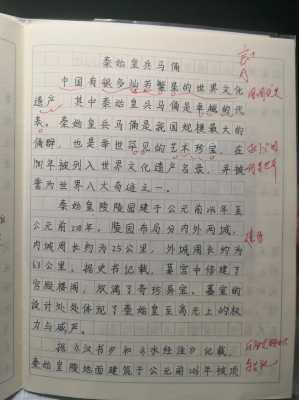 秦始皇兵马俑
中国有很多灿若繁星的世界文化
遗产，其中秦始皇兵马俑是卓越的代
表。秦始皇兵马俑是我国规模最大的
俑群，也是举世罕见的艺术珍宝，在
1987年被列入世界文化遗产名录，并被
誉为世界八大奇迹之一。
秦始皇陵陵园建于公元前246年至
公元前208年，陵园布局分内外两城，
内城周长约为2.5公里，外城周长约为
6.3公里，据史书记载，墓宫中修建了
宫殿楼阁，放满了奇珍异宝。墓室的
设计处处体现了秦始皇至高无上的权
力与威严。
据《汉书》和《水经注》记载，
秦始皇陵地面建筑于公元前206年被项